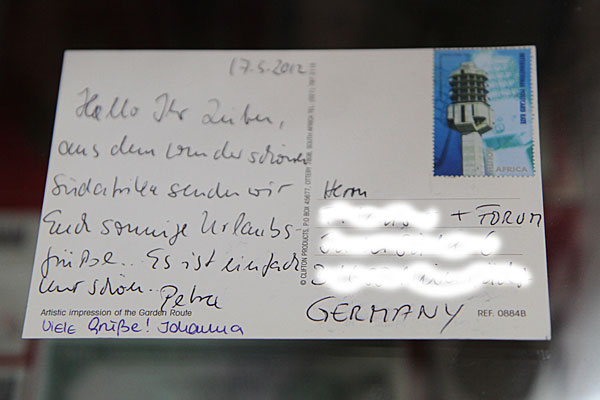 17.5.2012
Hallo Ihr Lieben,
aus dem wunderschönen
Südafrika senden wir
Euch sonnige Urlaubs-
grüße... Es ist einfach
nur schön...
Petra
Artistic impression of the Garden Route
Viele Grüße! Johanna
© CLIFTON PRODUCTS, P.O. BOX
INTERNATIONAL POSTCARD RATE
AFRICA
Herrn
+ FORUM
GERMANY
REF. 0884B